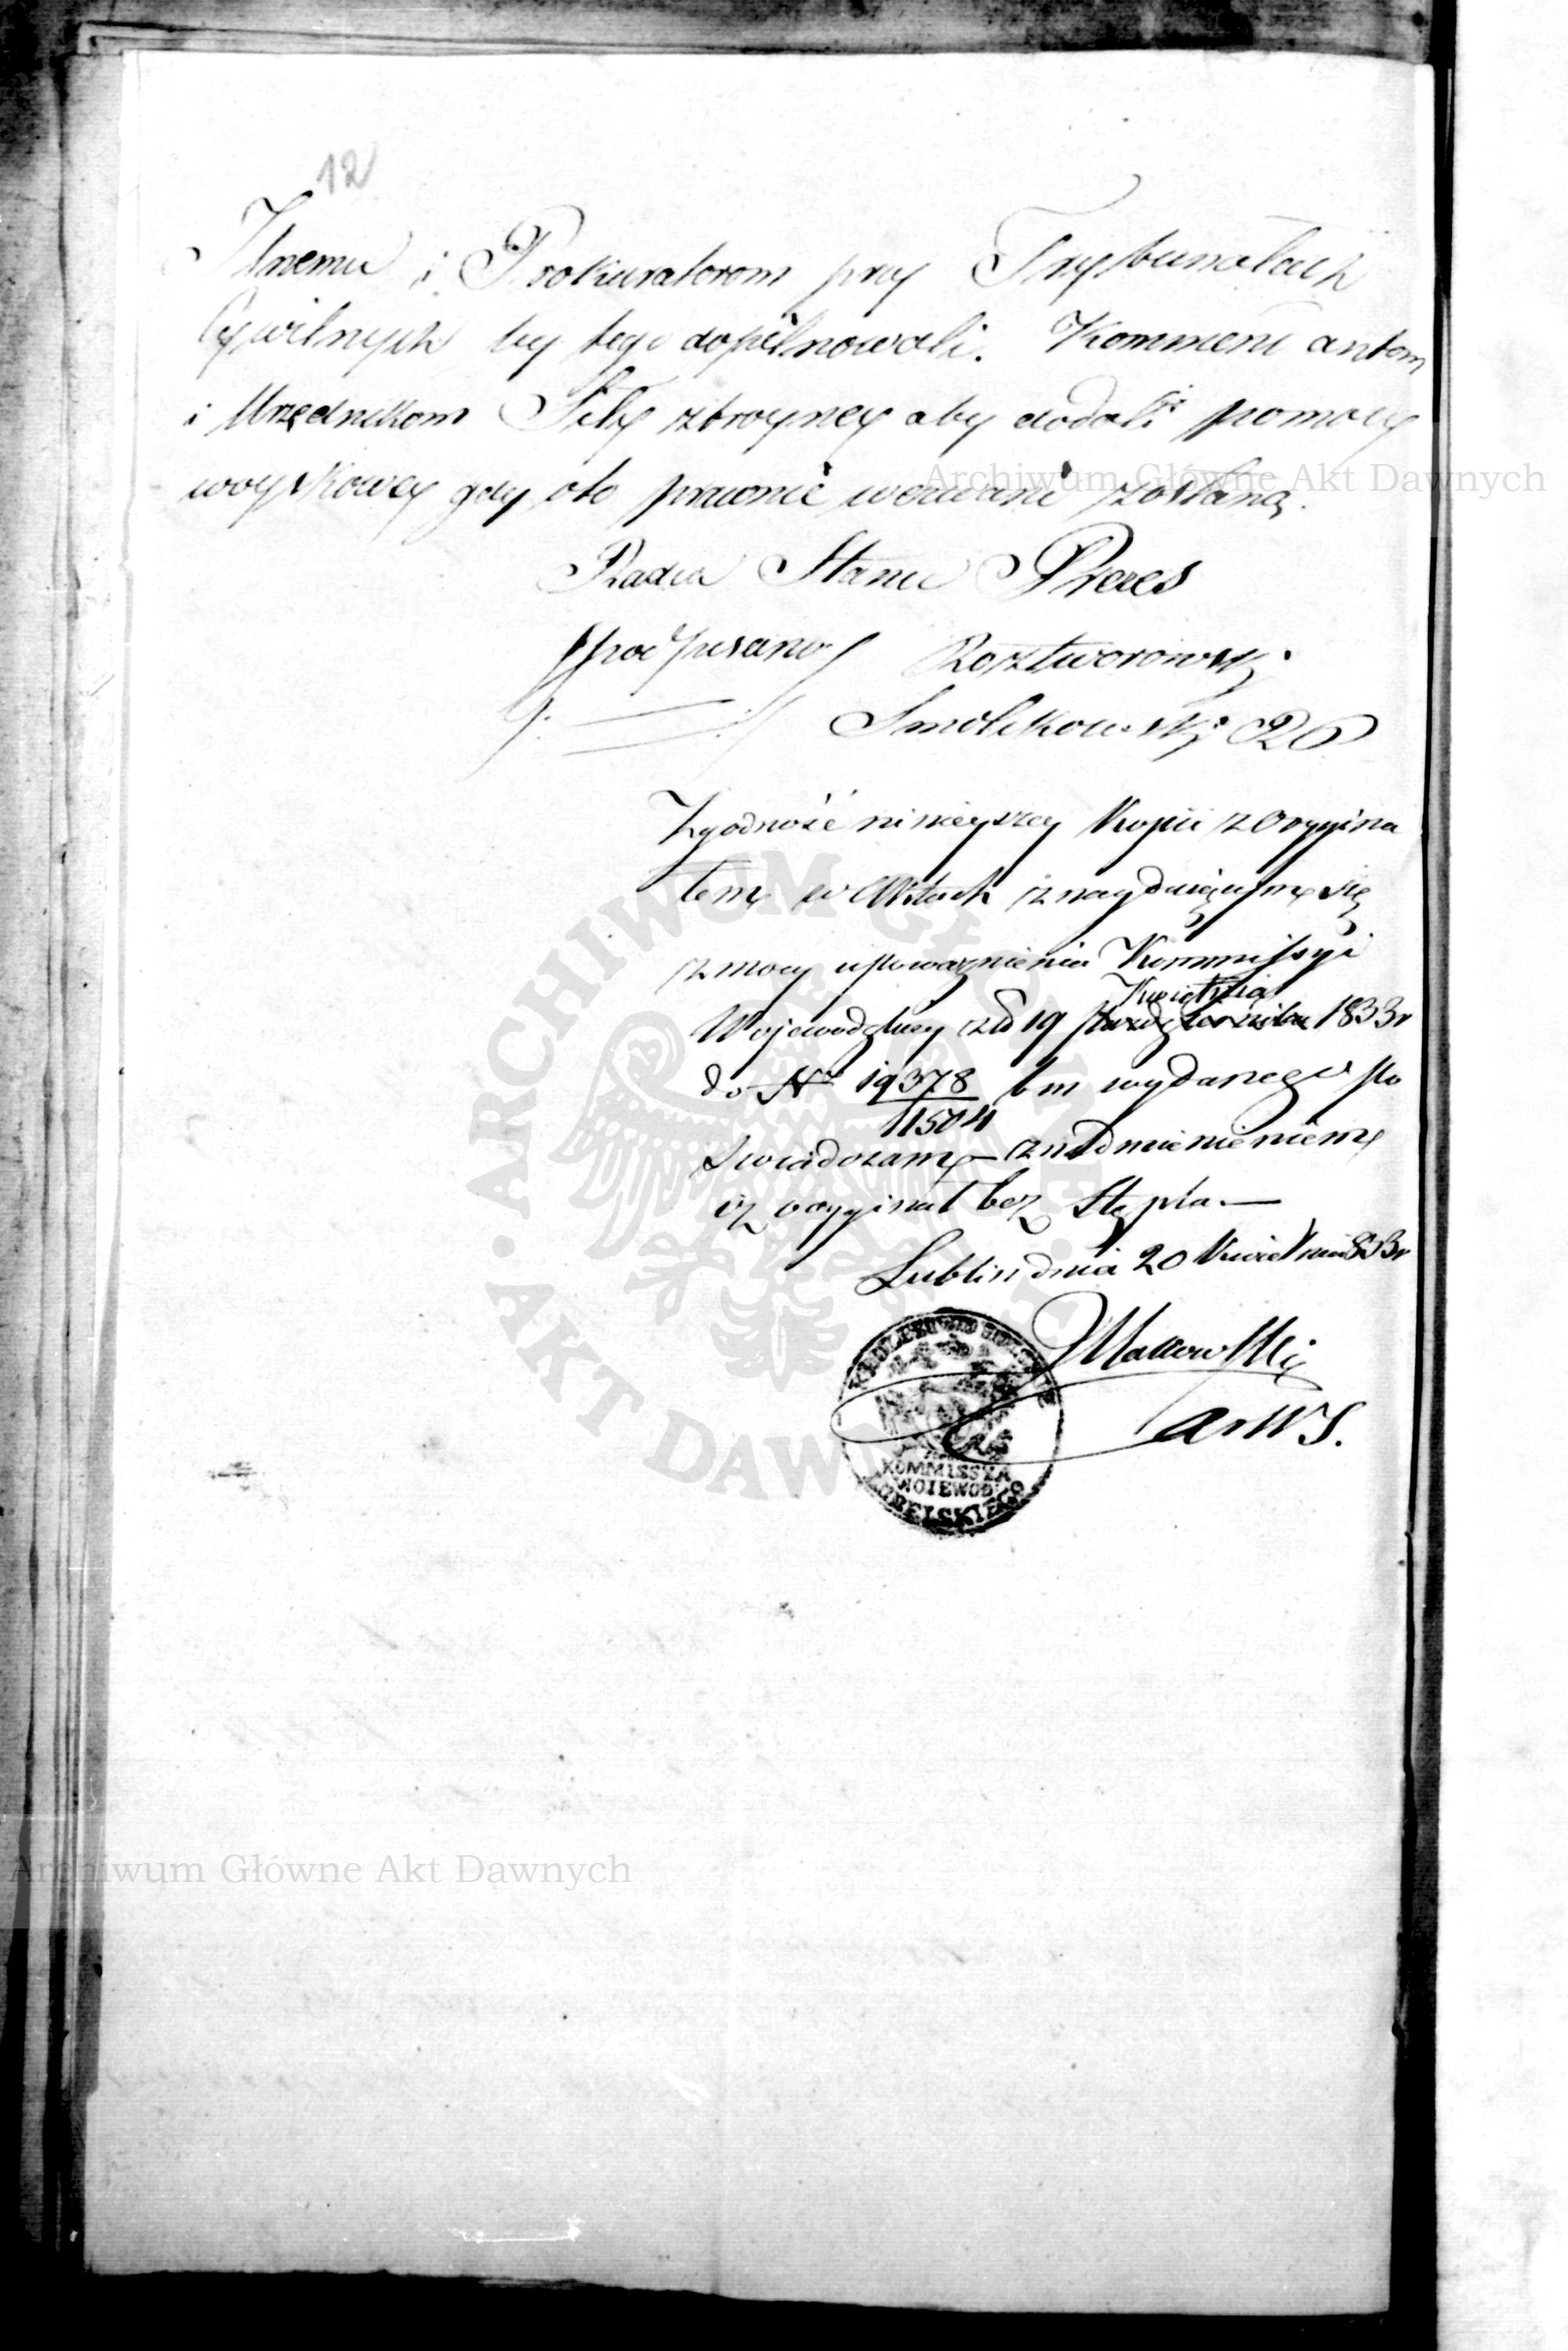 12
Ilnemu i Prokuratorom przy Trybunałach
Cywilnych by tego dopilnowali. Kommend antom
i Urzędnikom Siły zbroyney aby dodali pomocy
woyskowey gdy oto prawnie wezwani zostaną.
Radca Stanu Prezes
(podpisano) Rostworowski
Smolikowski
Zgodność ninieyszey Kopii z Orygina
łem w Aktach znayduiącym się
z mocy upoważnienia Kommissyi
Kwietnia
Wojewodzkiey z d 19 1833 r
do Nr 19378/11504 tm wydanego po
świadczam z nadmienieniem
iż oryginał bez Stępla.—
Lublin dnia 20 Kwietnia 833 r
Makowski
KOMMISSYA
WOIEWODZ
LUBELSKIEGO
Archiwum Główne Akt Dawnych
ARCHIWUM GŁÓWNE AKT DAWNYCH
Archiwum Główne Akt Dawnych